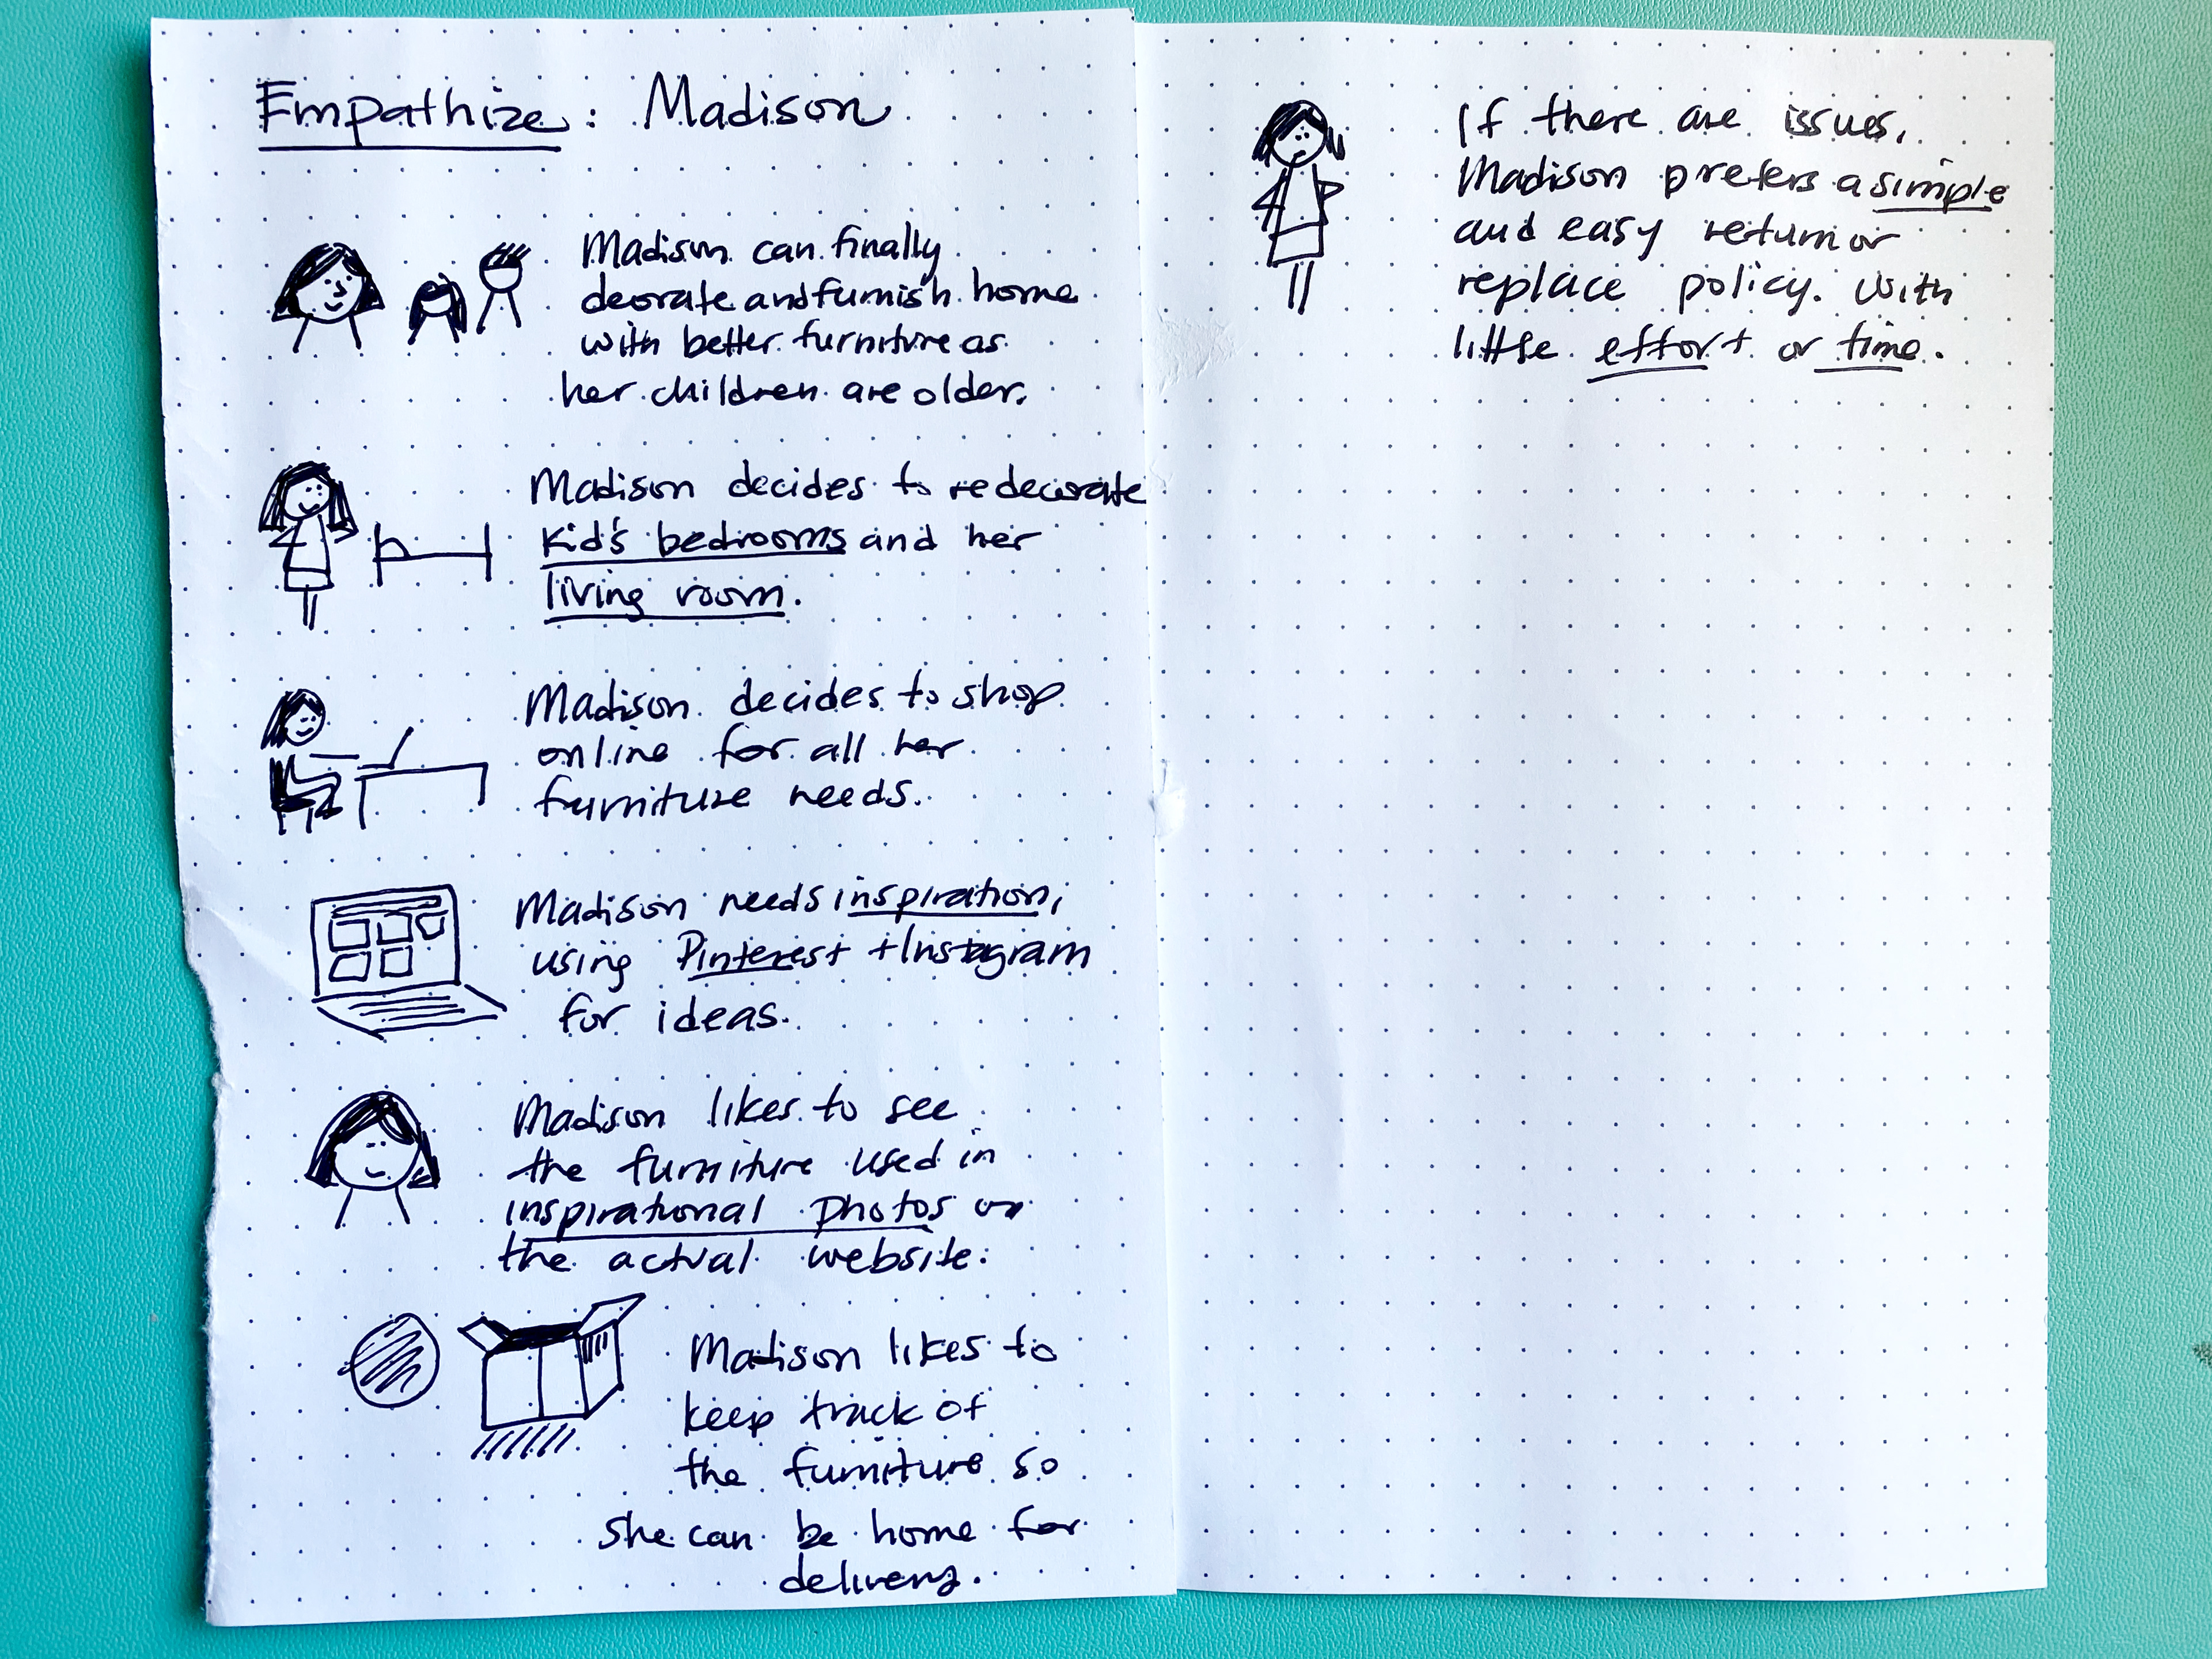 Empathize: Madison
Madison can finally
deorate and furnish home
with better furniture as
her children are older.
Madison decides to redecorate
kid's bedrooms and her
living room.
Madison decides to shop
online for all her
furniture needs.
Madison needs inspiration,
using Pinterest + Instagram
for ideas.
Madison likes to see
the furniture used in
inspirational photos on
the actual website.
Madison likes to
keep track of
the furniture so
she can be home for
delivery.
If there are issues,
Madison prefers a simple
and easy return or
replace policy. With
little effort or time.